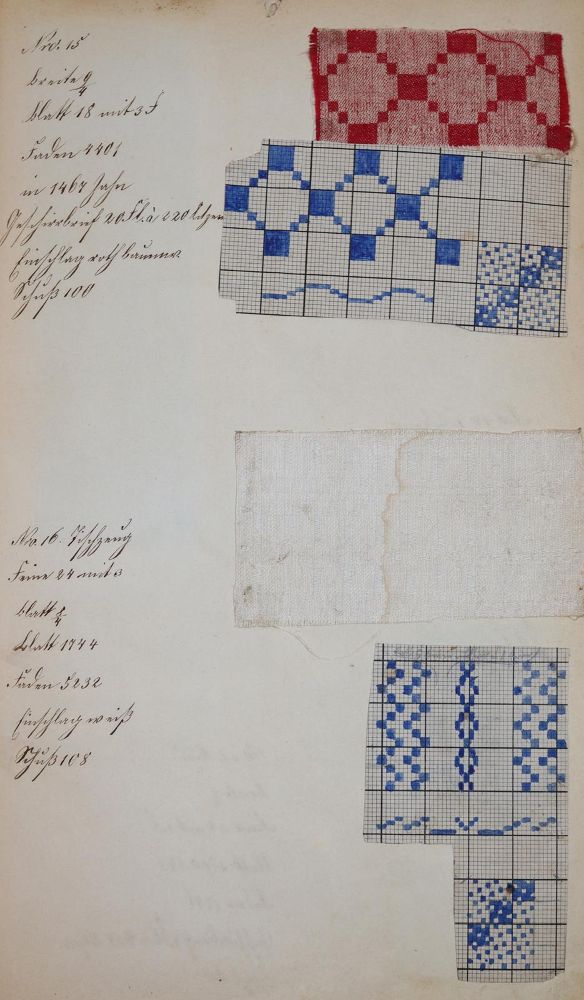 Nro. 15
Breite 9/4
Blatt 18 mit 3 F
Faden 4401
in 1467 Zahn
Geschirrbrief 20 St. à 220 Litzen
Einschlag roth baumw.
Schuß 100
No. 16. Tischzeug
Feine 24 mit 3
Blatt 8/4
Blatt 1744
Faden 5232
Einschlag weiß
Schuß 108